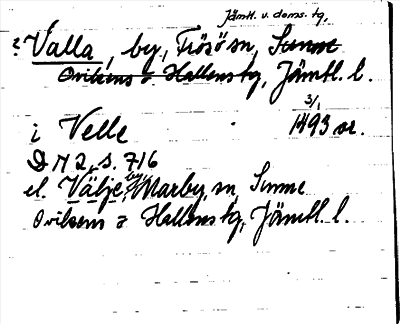 Jämtl. v. doms. tg,
? Valla, by, Frösö sn, Sunne
Ovikens o Hallens tg, Jämtl. l.
i Velle 3/1 1493 or.
DN 2, s. 716
el. Välje, by, Marby sn Sunne
Ovikens o Hallens tg, Jämtl. l.